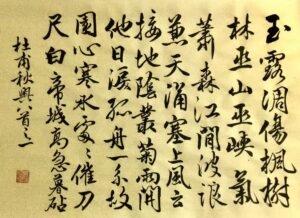 玉露凋傷楓樹
林巫山巫峽氣
蕭森江間波浪
兼天涌塞上風云
接地陰叢菊兩開
他日淚孤舟一系故
園心寒衣處〻催刀
尺白帝城高急暮砧
杜甫秋興八首之一